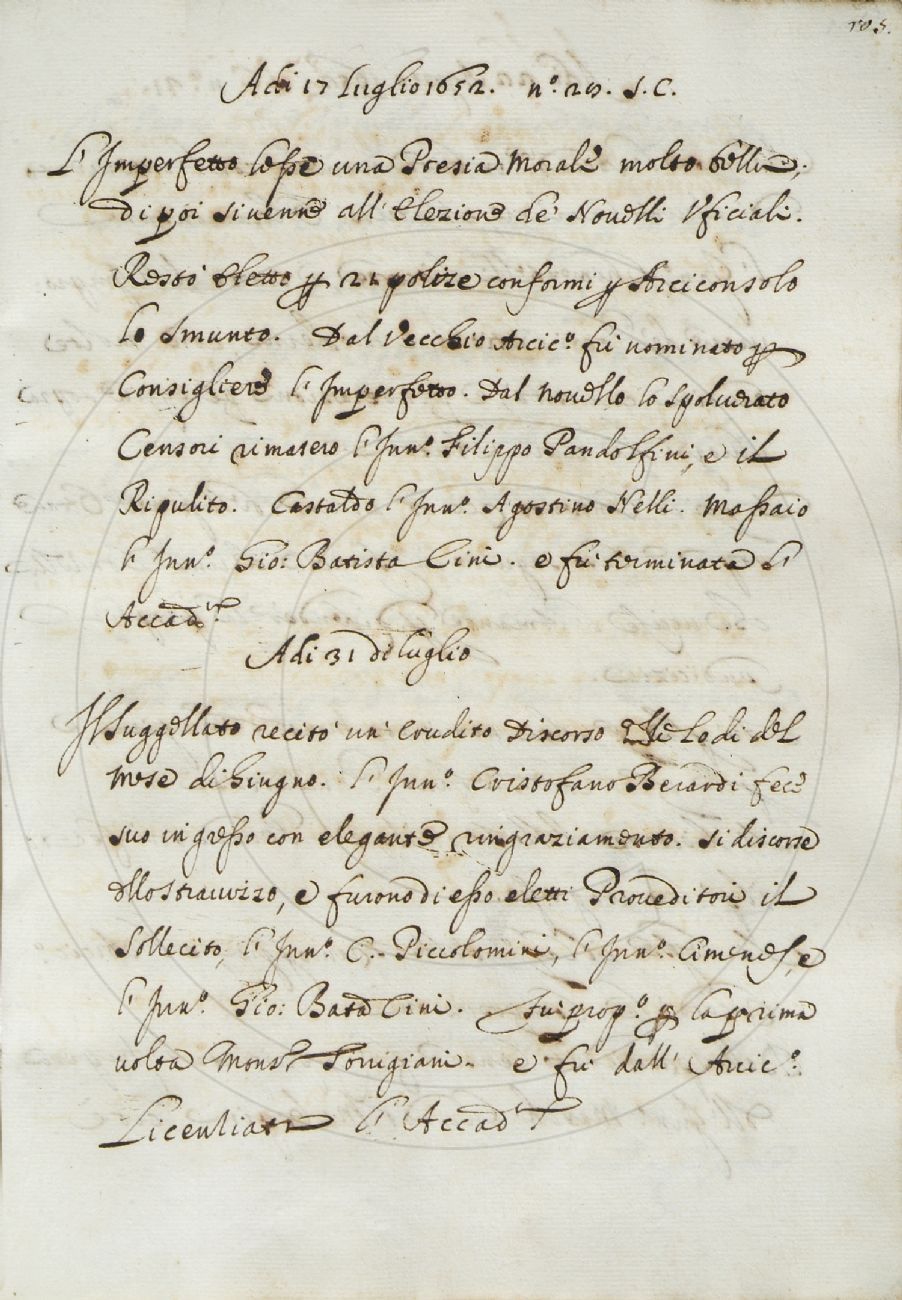 105.
Adi 17 luglio 1652. nº. 29. S. C.
L'Imperfetto lesse una Poesia Morale molto bella;
di poi si venne all'Elezione de' Novelli Uficiali.
Restò Eletto p 21 polize conformi p Arciconsolo
lo Smunto. Dal Vecchio Arcicº. fù nominato p
Consigliere l'Imperfetto. Dal novello lo Spolverato
Censori rimasero l'Innº. Filippo Pandolfini, e il
Ripulito. Castaldo l'Innº. Agostino Nelli. Massaio
l'Innº. Gio: Batista Cini. e fù terminata l'
Accad.
Adi 31 di luglio
Il Suggellato recitò un' erudito Discorso Lodi del
Mese di Giugno. l'Innº. Cristofano Berardi fece
suo ingresso con elegante ringraziamento. si discorse
dello stravizzo, e furono di esso eletti Proveditori il
Sollecito, l'Innº. C. Piccolomini, l'Innº. Cimenes, e
l'Innº. Gio: Bata Cini. Fu propº. p la prima
volta Monsr Torrigiani. e fù dall'Arcicº.
Licenziata l'Accad